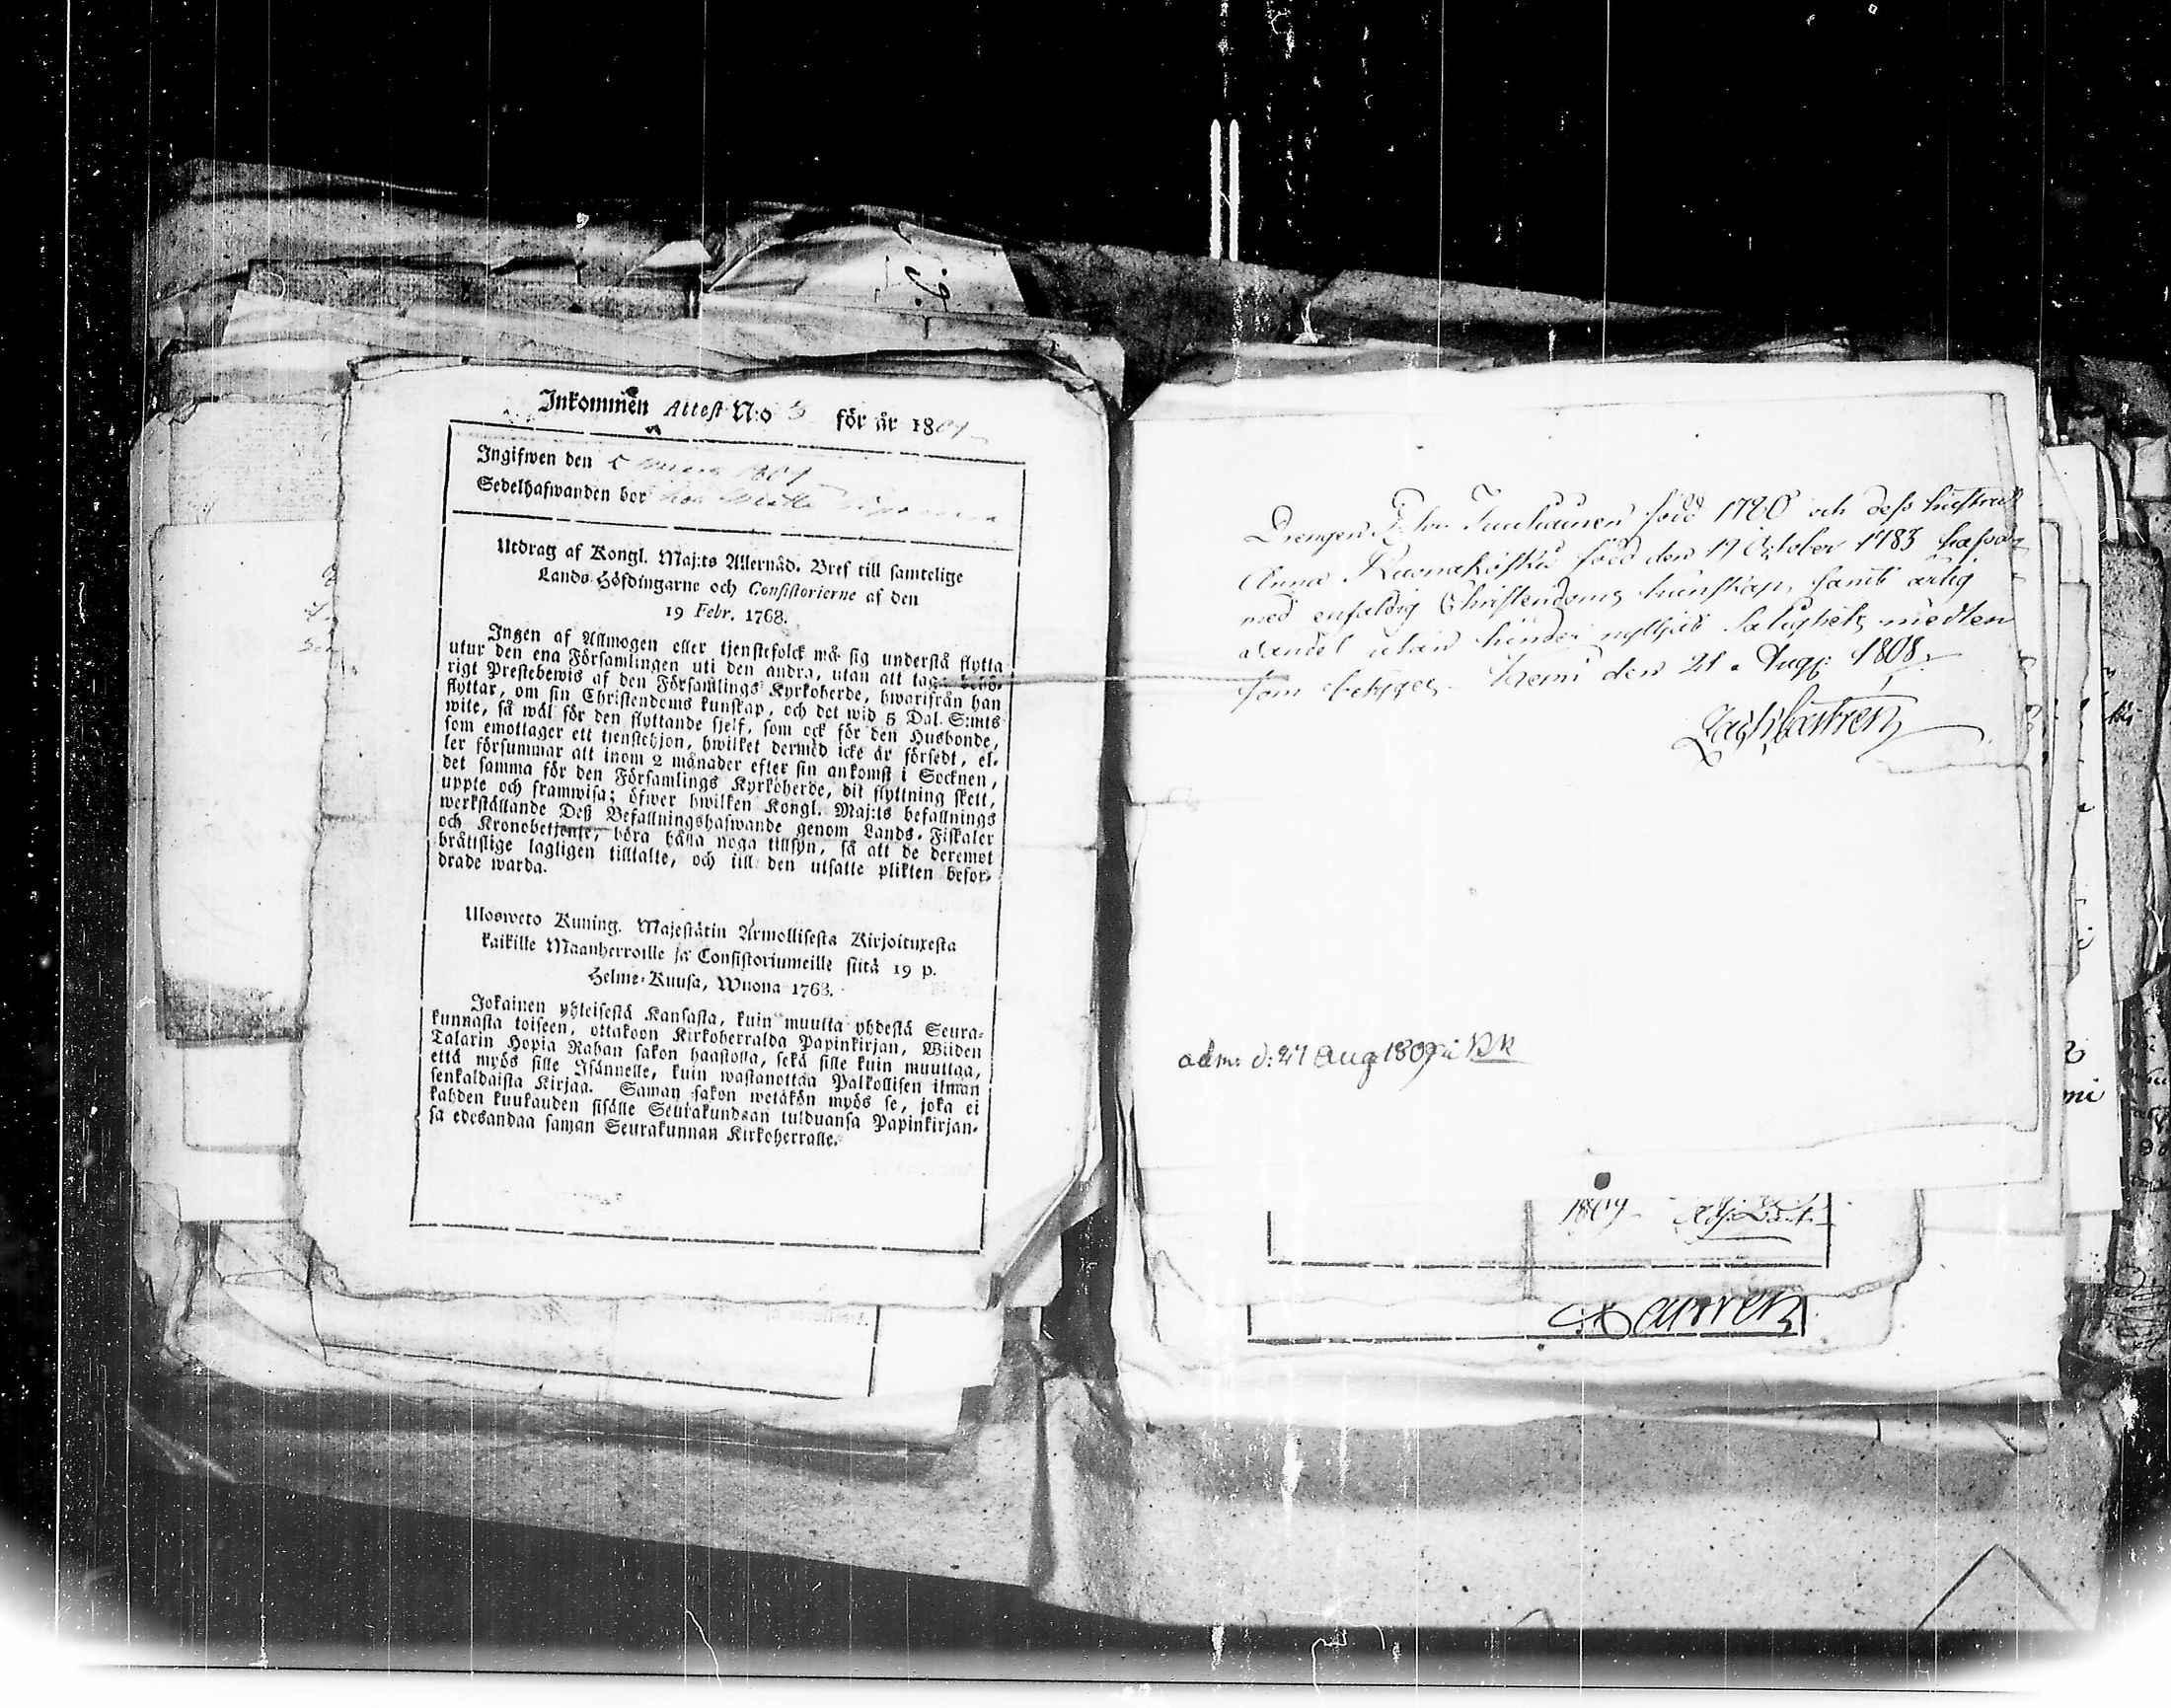 Inkommen Attest N:o 3 för år 1809
Ingifwen den 5 1809
Sedelhafwanden bor hos
Utdrag af Kongl. Maj:ts Allernåd. Bref till samtelige
Lands-Höfdingarne och Consistorierne af den
19 Febr. 1768.
Ingen af Allmogen eller tjenstefolck må sig understå flytta
utur den ena Församlingen uti den andra, utan att taga behö-
rigt Prestebewis af den Församlings Kyrkoherde, hwarifrån han
flyttar, om sin Christendoms kunskap, och det wid 5 Dal. S:mts
wite, så wäl för den flyttande sjelf, som ock för den Husbonde,
som emottager ett tjenstehjon, hwilket dermed icke är försedt, el-
ler försummar att inom 2 månader efter sin ankomst i Socknen,
det samma för den Församlings Kyrkoherde, dit flyttning skett,
uppte och framwisa; öfwer hwilken Kongl. Maj:ts befallnings
werkställande Deß Befallningshafwande genom Lands-Fiskaler
och Kronobetjente, böra hålla noga tillsyn, så att de deremot
bråttslige lagligen tilltalte, och till den utsatte plikten befor-
drade warda.
Ulosweto Kuning. Majestätin Armollisesta Kirjoituxesta
kaikille Maanherroille ja Consistoriumeille siitä 19 p.
Helme-Kuusa, Wuona 1768.
Jokainen yhteisestä Kansasta, kuin muutta yhdestä Seura-
kunnasta toiseen, ottakoon Kirkoherralda Papinkirjan, Wiiden
Talarin Hopia Rahan sakon haastolla, sekä sille kuin muuttaa,
että myös sille Isännelle, kuin wastanottaa Palkollisen ilman
senkaldaista Kirjaa. Saman sakon wetäkön myös se, joka ei
kahden kuukauden sisälle Seurakundaan tulduansa Papinkirjan-
sa edesandaa saman Seurakunnan Kirkoherralle.
Drengen Johan Juuhainen född 1780 och dess hustru
Anna Kuonakoski född den 19 October 1783 hafwa
med enfaldig Christendoms kunskap, samt ärlig
wandel utan hinder nyttjat Salighets medlen
som betygges. Kemi den 21 Aug: 1808
Castrén
adm. d: 27 Aug 1809 i BK
1809
Castrén